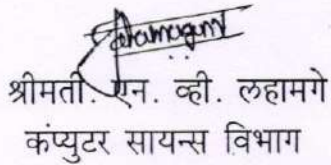 श्रीमती. एन. व्ही. लहामगे
कंप्युटर सायन्स विभाग